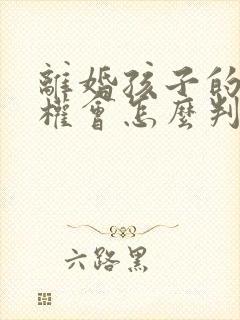 離婚孩子的
權會怎麼判
六路黑